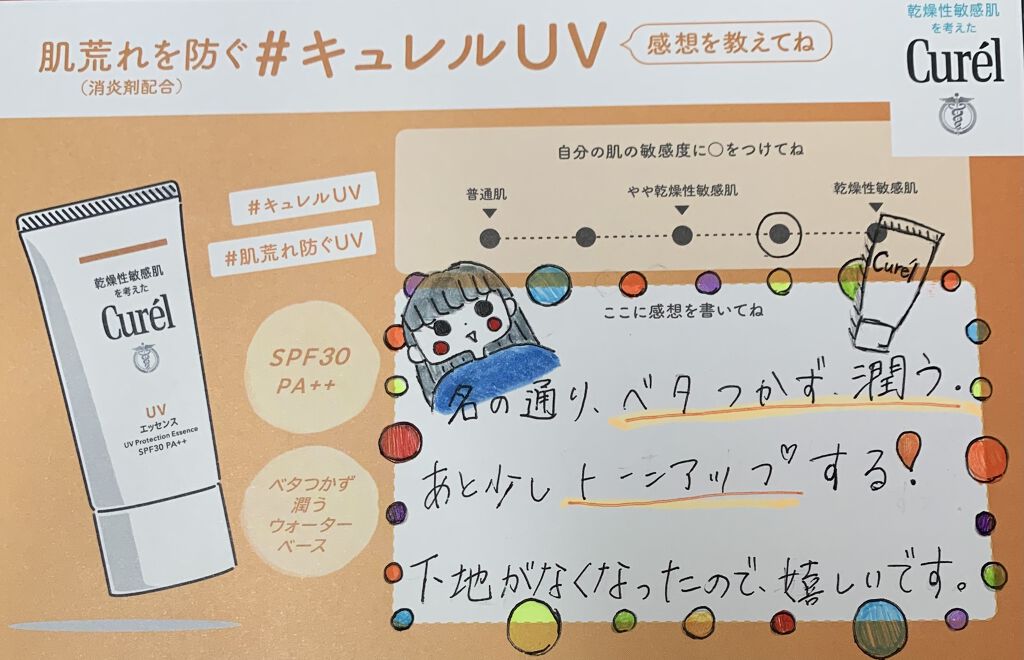 肌荒れを防ぐ#キュレルUV
(消炎剤配合)
感想を教えてね
乾燥性敏感肌
を考えた
Curél
自分の肌の敏感度に〇をつけてね
普通肌
やや乾燥性敏感肌
乾燥性敏感肌
#キュレルUV
#肌荒れ防ぐUV
乾燥性敏感肌
を考えた
Curél
UV
エッセンス
UV Protection Essence
SPF30 PA++
SPF30
PA++
ベタつかず
潤う
ウォーター
ベース
Curél
ここに感想を書いてね
名の通り、ベタつかず、潤う.
あと少しトーンアップ♡する!
下地がなくなったので、嬉しいです。